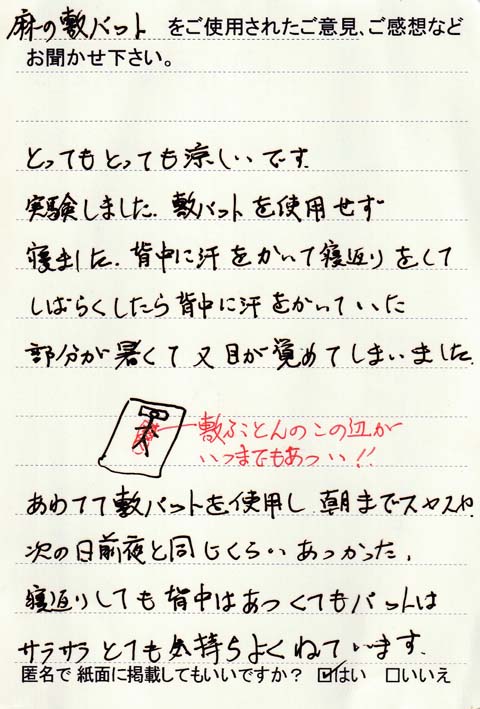 麻の敷パット をご使用されたご意見、ご感想など
お聞かせ下さい。
とってもとっても涼しいです.
実験しました. 敷パットを使用せず
寝ました. 背中に汗をかいて寝返りをして
しばらくしたら背中に汗をかいていた
部分が暑くて又目が覚めてしまいました.
敷ぶとんのこの辺が
いつまでもあつい!!
あわてて敷パットを使用し 朝までスヤスヤ.
次の日前夜と同じくらいあつかった.
寝返りしても背中はあつくてもパットは
サラサラとても気持ちよくねています.
匿名で紙面に掲載してもいいですか? ☑はい □いいえ